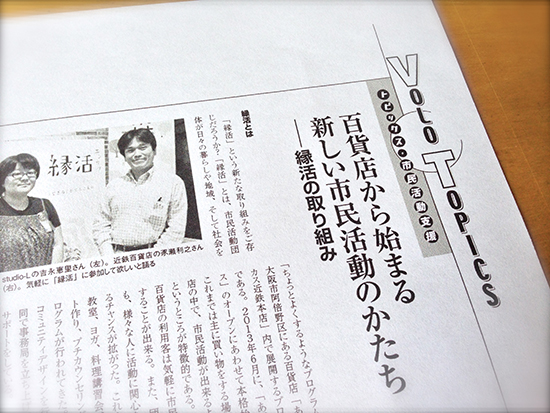 VOLO TOPICS
トピックス・市民活動支援
百貨店から始まる
新しい市民活動のかたち
──縁活の取り組み
縁活
studio-Lの吉永恵里さん（左）。近鉄百貨店の承瀬利之さん
（右）。気軽に「縁活」に参加して欲しいと語る
縁活とは
「縁活」という新たな取り組みをご存
じだろうか？「縁活」とは、市民活動団
体が日々の暮らしや地域、そして社会を
「ちょっとよくするようなプログラ
大阪市阿倍野区にある百貨店「あ
カス近鉄本店」内で展開するプロ
である。2013年6月に、「あ
ス」のオープンにあわせて本格始
これまでは主に買い物をする場
店の中で、市民活動が出来る
というところが特徴的である。
百貨店の利用客は気軽に市民
することが出来る。また、団
も、様々な人に活動に関心
るチャンスが拡がった。これ
教室、ヨガ、料理講習会
ト作り、プチカウンセリン
ログラムが行われてきた
コミュニティデザインを
同で事務局を立ち上
サポートを